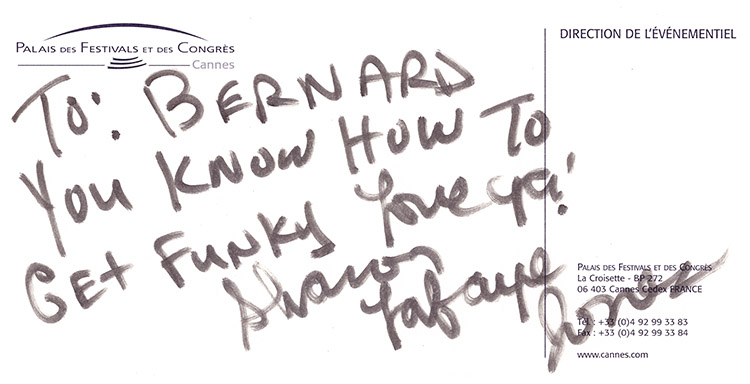 PALAIS DES FESTIVALS ET DES CONGRÈS
Cannes
DIRECTION DE L'ÉVÉNEMENTIEL
TO: BERNARD
YOU KNOW HOW TO
GET FUNKY Love ya!
Sharon
Lafaye Jones
PALAIS DES FESTIVALS ET DES CONGRÈS
La Croisette - BP 272
06 403 Cannes Cedex FRANCE
Tél : +33 (0)4 92 99 33 83
Fax : +33 (0)4 92 99 33 84
www.cannes.com